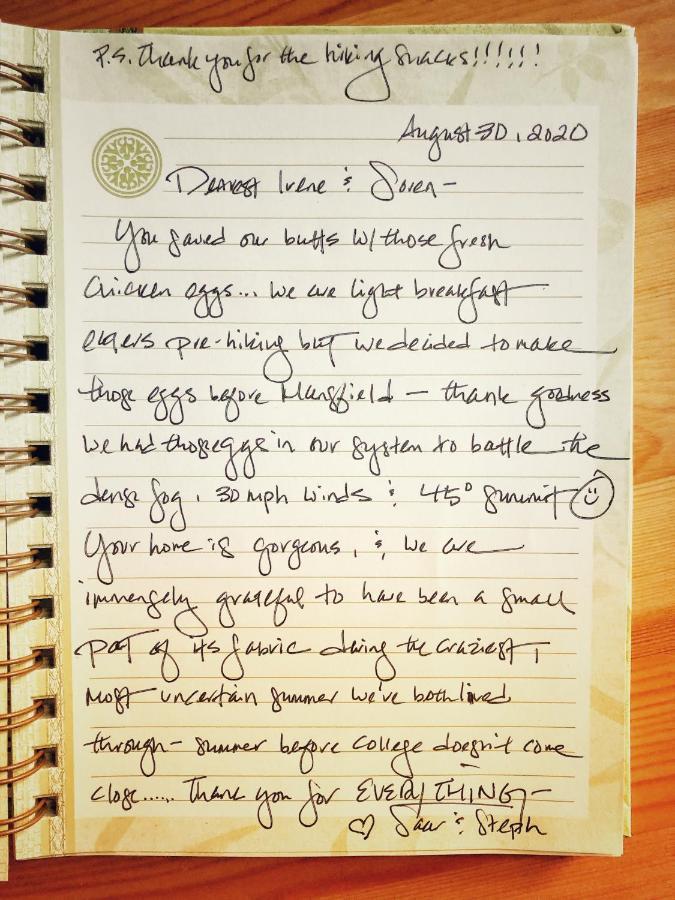 P.S. Thank you for the hiking snacks!!!!!!
August 30, 2020
Dearest Irene & Soren-
You saved our butts w/ those fresh
chicken eggs... We are light breakfast
eaters pre-hiking but we decided to make
those eggs before Mansfield - thank goodness
we had those eggs in our system to battle the
dense fog, 30 mph winds & 45° summit
Your home is gorgeous, & we are
immensely grateful to have been a small
part of its fabric during the craziest,
most uncertain summer we've both lived
through - summer before college doesn't come
close...... Thank you for EVERYTHING-
♡ & Steph